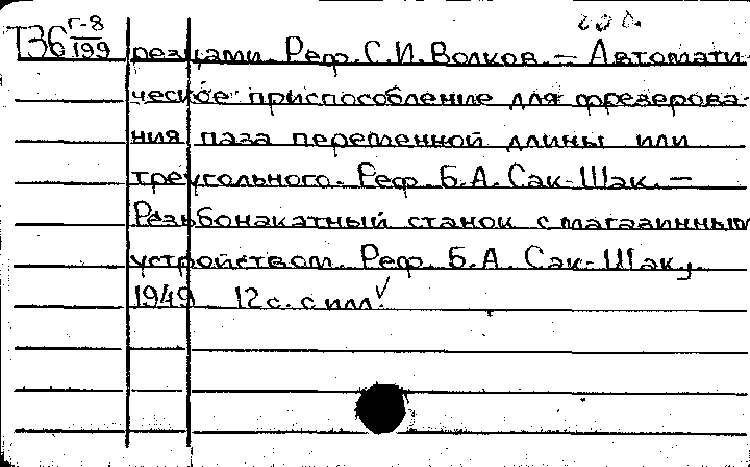 Т36 Г-8/199 резцами. Реф. С.И. Волков. — Автомати-
ческое приспособление для фрезерова-
ния паза переменной длины или
треугольного. Реф. Б.А. Сак-Шак. —
Резьбонакатный станок с магазинным
устройством. Реф. Б.А. Сак-Шак,
1949 12 с. с илл.